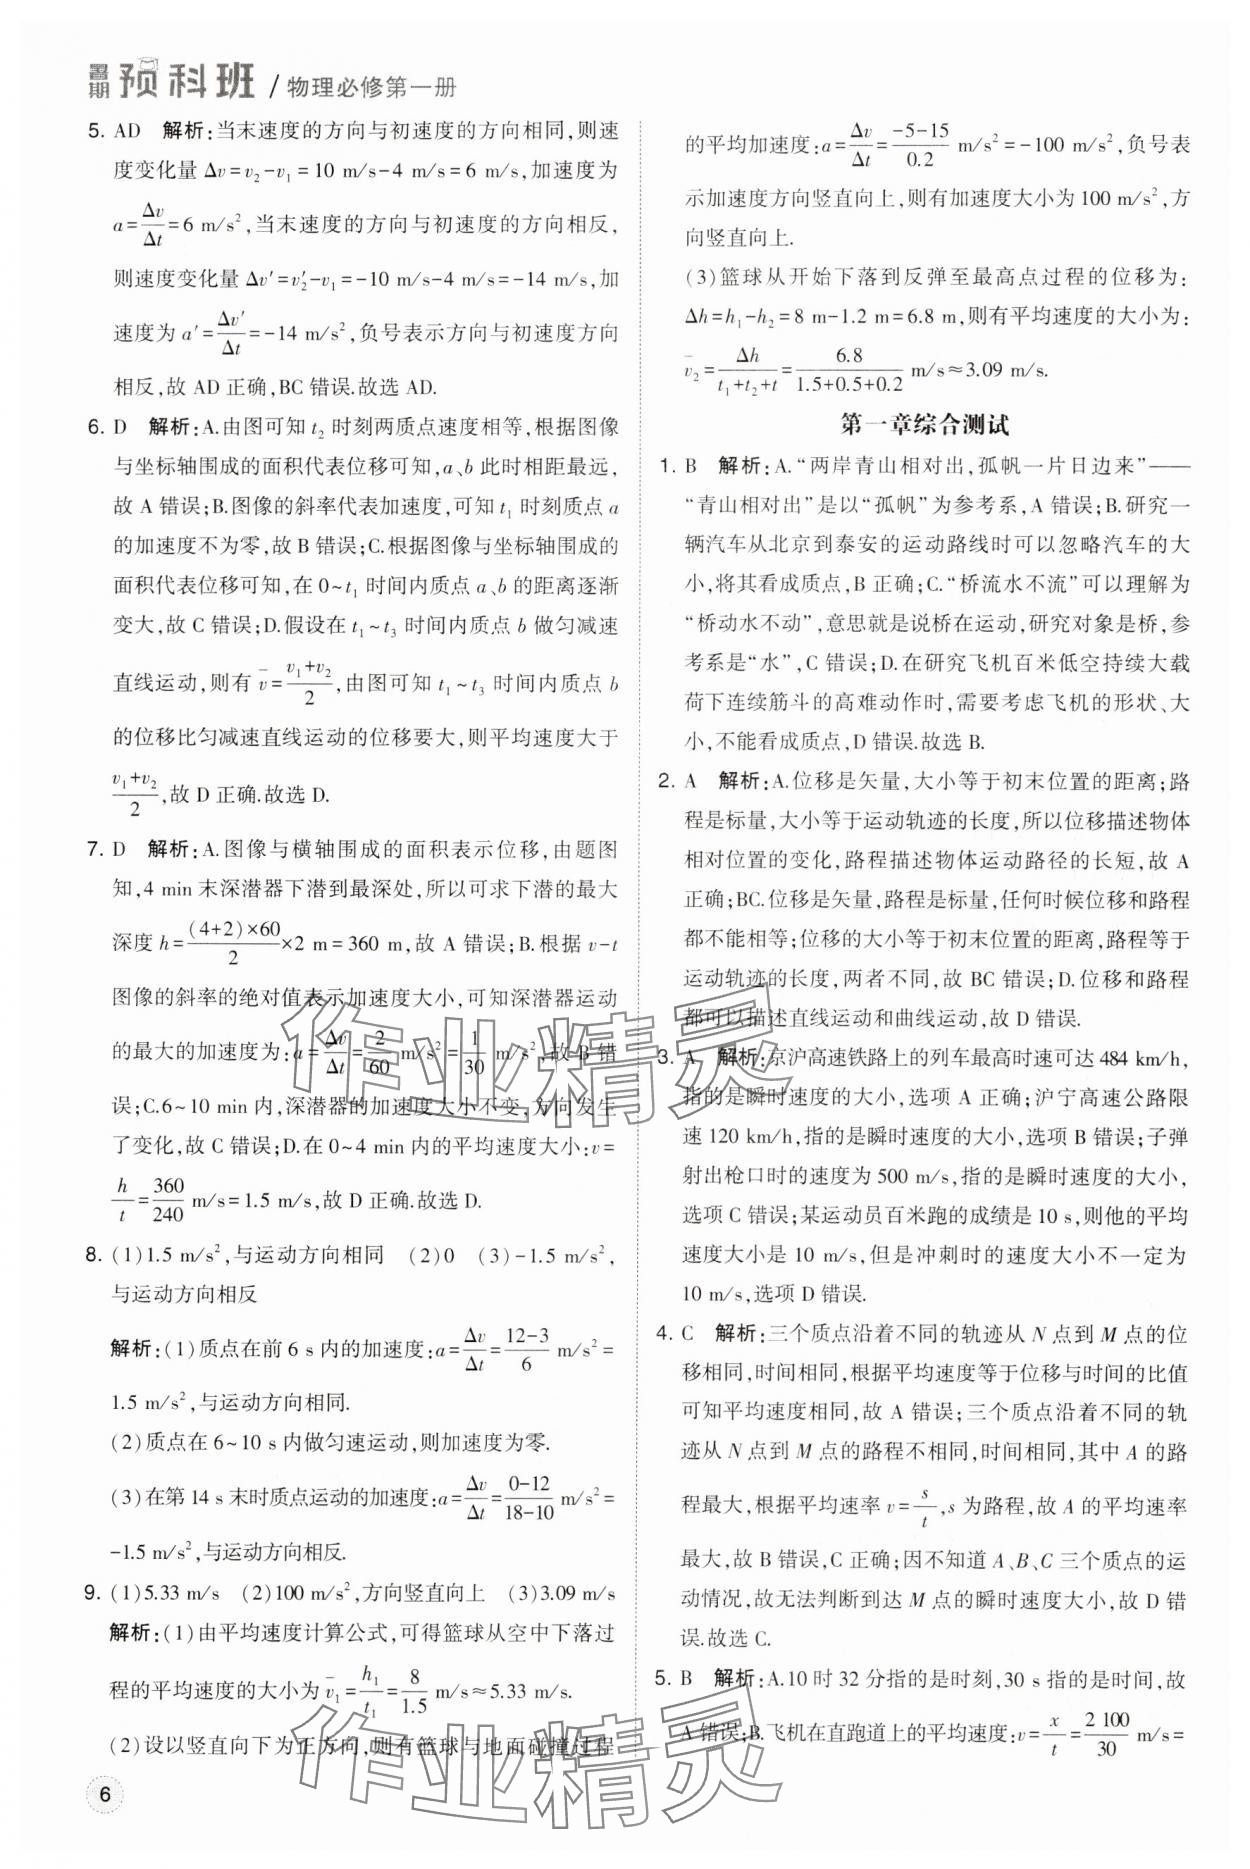 暑期预科班/物理必修第一册
5. AD　解析:当末速度的方向与初速度的方向相同,则速
度变化量 Δv=v₂-v₁=10 m/s-4 m/s=6 m/s,加速度为
a=Δv/Δt=6 m/s²,当末速度的方向与初速度的方向相反,
则速度变化量 Δv′=v₂′-v₁=-10 m/s-4 m/s=-14 m/s,加
速度为 a′=Δv′/Δt=-14 m/s²,负号表示方向与初速度方向
相反,故 AD 正确,BC 错误.故选 AD.
6. D　解析:A.由图可知 t₂ 时刻两质点速度相等,根据图像
与坐标轴围成的面积代表位移可知,a、b 此时相距最远,
故 A 错误;B.图像的斜率代表加速度,可知 t₁ 时刻质点 a
的加速度不为零,故 B 错误;C.根据图像与坐标轴围成的
面积代表位移可知,在 0~t₁ 时间内质点 a、b 的距离逐渐
变大,故 C 错误;D.假设在 t₁~t₃ 时间内质点 b 做匀减速
直线运动,则有 v̄=(v₁+v₂)/2,由图可知 t₁~t₃ 时间内质点 b
的位移比匀减速直线运动的位移要大,则平均速度大于
(v₁+v₂)/2,故 D 正确.故选 D.
7. D　解析:A.图像与横轴围成的面积表示位移,由题图
知,4 min 末深潜器下潜到最深处,所以可求下潜的最大
深度 h=(4+2)×60/2×2 m=360 m,故 A 错误;B.根据 v-t
图像的斜率的绝对值表示加速度大小,可知深潜器运动
的最大的加速度为:a=Δv/Δt=2/60 m/s²=1/30 m/s²,故 B 错
误;C.6~10 min 内,深潜器的加速度大小不变,方向发生
了变化,故 C 错误;D.在 0~4 min 内的平均速度大小:v=
h/t=360/240 m/s=1.5 m/s,故 D 正确.故选 D.
8. (1)1.5 m/s²,与运动方向相同　(2)0　(3)-1.5 m/s²,
与运动方向相反
解析:(1)质点在前 6 s 内的加速度:a=Δv/Δt=(12-3)/6 m/s²=
1.5 m/s²,与运动方向相同.
(2)质点在 6~10 s 内做匀速运动,则加速度为零.
(3)在第 14 s 末时质点运动的加速度:a=Δv/Δt=(0-12)/(18-10) m/s²=
-1.5 m/s²,与运动方向相反.
9. (1)5.33 m/s　(2)100 m/s²,方向竖直向上　(3)3.09 m/s
解析:(1)由平均速度计算公式,可得篮球从空中下落过
程的平均速度的大小为 v̄₁=h₁/t₁=8/1.5 m/s≈5.33 m/s.
(2)设以竖直向下为正方向,则有篮球与地面碰撞过程
的平均加速度:a=Δv/Δt=(-5-15)/0.2 m/s²=-100 m/s²,负号表
示加速度方向竖直向上,则有加速度大小为 100 m/s²,方
向竖直向上.
(3)篮球从开始下落到反弹至最高点过程的位移为:
Δh=h₁-h₂=8 m-1.2 m=6.8 m,则有平均速度的大小为:
v̄₂=Δh/(t₁+t₂+t)=6.8/(1.5+0.5+0.2) m/s≈3.09 m/s.
第一章综合测试
1. B　解析:A.“两岸青山相对出,孤帆一片日边来”——
“青山相对出”是以“孤帆”为参考系,A 错误;B.研究一
辆汽车从北京到泰安的运动路线时可以忽略汽车的大
小,将其看成质点,B 正确;C.“桥流水不流”可以理解为
“桥动水不动”,意思就是说桥在运动,研究对象是桥,参
考系是“水”,C 错误;D.在研究飞机百米低空持续大载
荷下连续筋斗的高难动作时,需要考虑飞机的形状、大
小,不能看成质点,D 错误.故选 B.
2. A　解析:A.位移是矢量,大小等于初末位置的距离;路
程是标量,大小等于运动轨迹的长度,所以位移描述物体
相对位置的变化,路程描述物体运动路径的长短,故 A
正确;BC.位移是矢量,路程是标量,任何时候位移和路程
都不能相等;位移的大小等于初末位置的距离,路程等于
运动轨迹的长度,两者不同,故 BC 错误;D.位移和路程
都可以描述直线运动和曲线运动,故 D 错误.
3. A　解析:京沪高速铁路上的列车最高时速可达 484 km/h,
指的是瞬时速度的大小,选项 A 正确;沪宁高速公路限
速 120 km/h,指的是瞬时速度的大小,选项 B 错误;子弹
射出枪口时的速度为 500 m/s,指的是瞬时速度的大小,
选项 C 错误;某运动员百米跑的成绩是 10 s,则他的平均
速度大小是 10 m/s,但是冲刺时的速度大小不一定为
10 m/s,选项 D 错误.
4. C　解析:三个质点沿着不同的轨迹从 N 点到 M 点的位
移相同,时间相同,根据平均速度等于位移与时间的比值
可知平均速度相同,故 A 错误;三个质点沿着不同的轨
迹从 N 点到 M 点的路程不相同,时间相同,其中 A 的路
程最大,根据平均速率 v=s/t,s 为路程,故 A 的平均速率
最大,故 B 错误,C 正确;因不知道 A、B、C 三个质点的运
动情况,故无法判断到达 M 点的瞬时速度大小,故 D 错
误.故选 C.
5. B　解析:A.10 时 32 分指的是时刻,30 s 指的是时间,故
A 错误;B.飞机在直跑道上的平均速度:v=x/t=2 100/30 m/s=
6
作业精灵
作业精灵